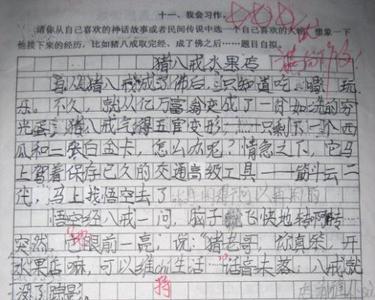 十一、我会习作。
请你从自己喜欢的神话故事或者民间传说中选一个自己喜欢的人物，想象一下
他接下来的经历，比如猪八戒取完经、成了佛之后……题目自拟。
猪八戒水果店
猪八戒成了佛后，只知道吃、喝、玩、
乐。不久，就从亿万富翁变成了一贫如洗的穷
光蛋，猪八戒气得五官变形，只剩下一个西
瓜和一张白金卡，怎么办呢？情急之下，它马
上穿着保存已久的交通高级工具——筋斗云二
代，马上找悟空去了
悟空经八戒一问，脑子飞快地转啊转
突然，眼前一亮，说："猪老哥，你真笨，开
水果店嘛，可以维chi生活"话音未落，八戒就
没了踪影
持